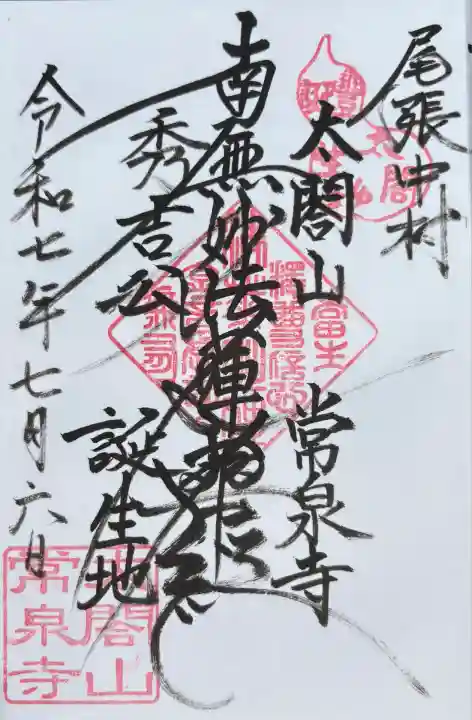 尾張中村
太閤山 常泉寺
南無妙法蓮華経
秀吉公 誕生地
令和七年七月六日
豊
太閤
太閤山
常泉寺